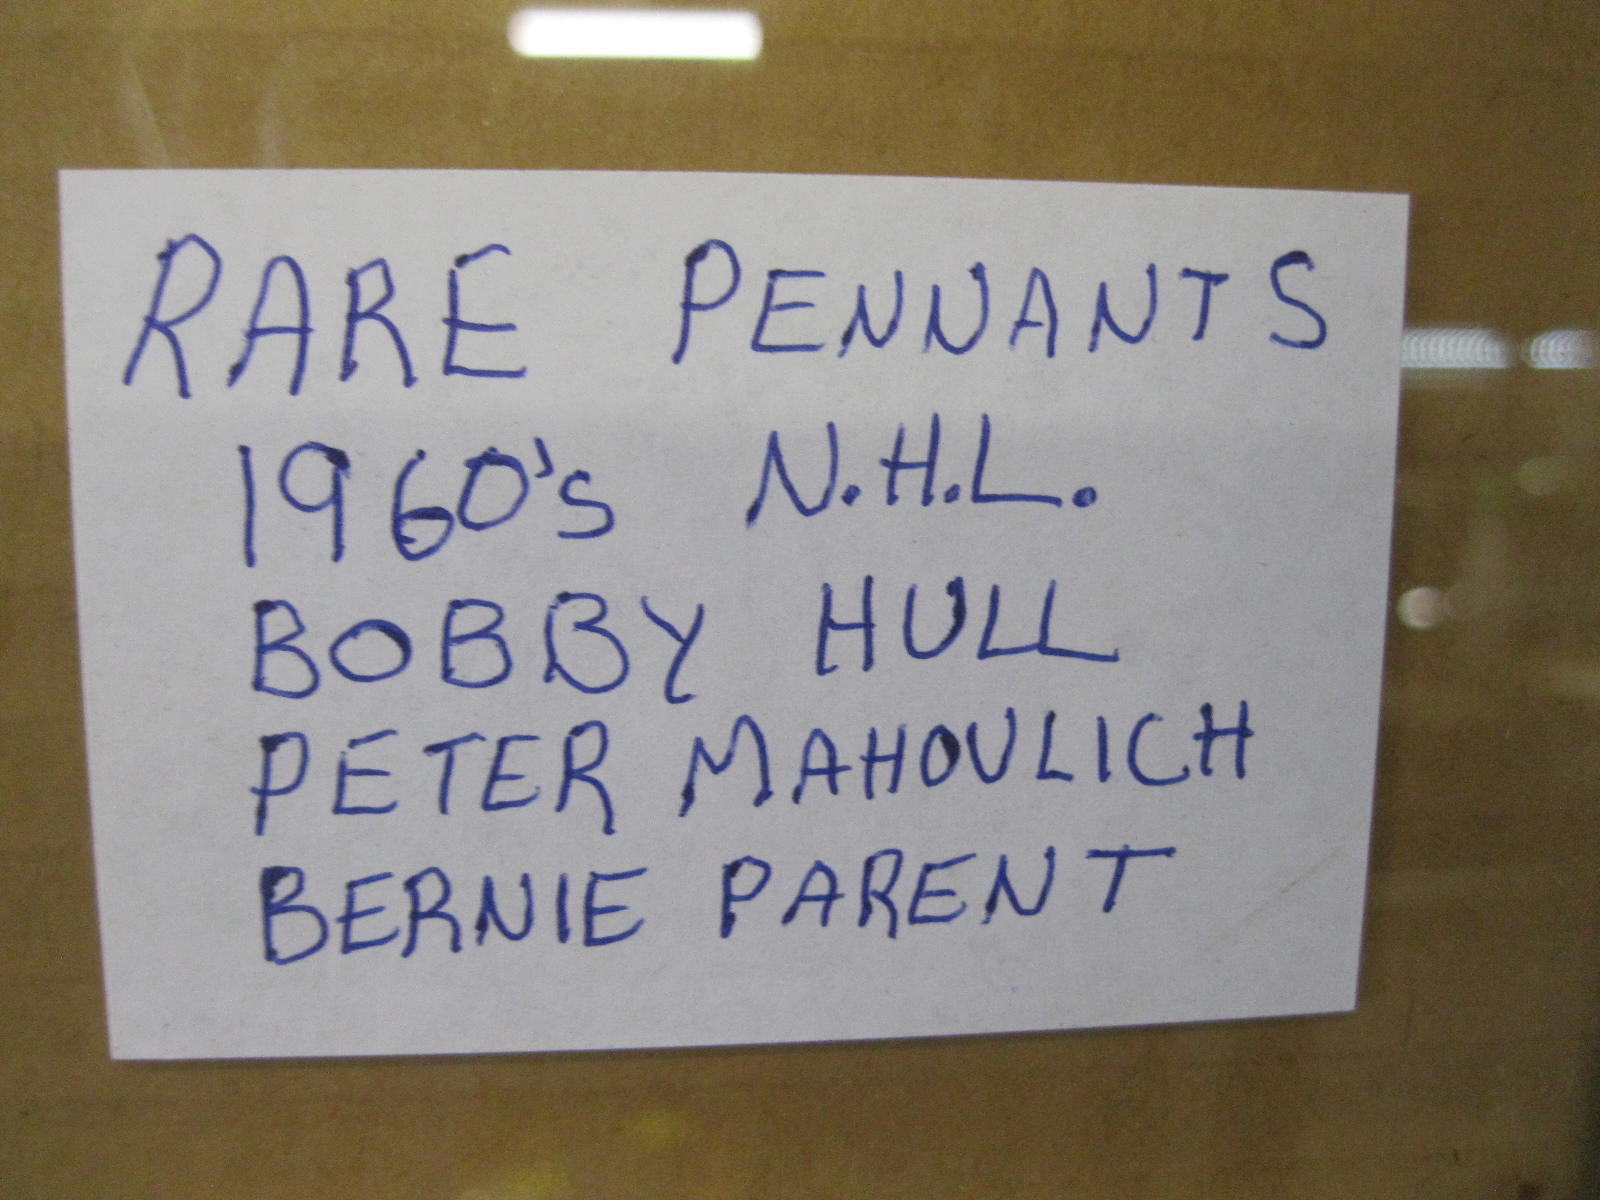 RARE PENNANTS
1960's N.H.L.
BOBBY HULL
PETER MAHOVLICH
BERNIE PARENT